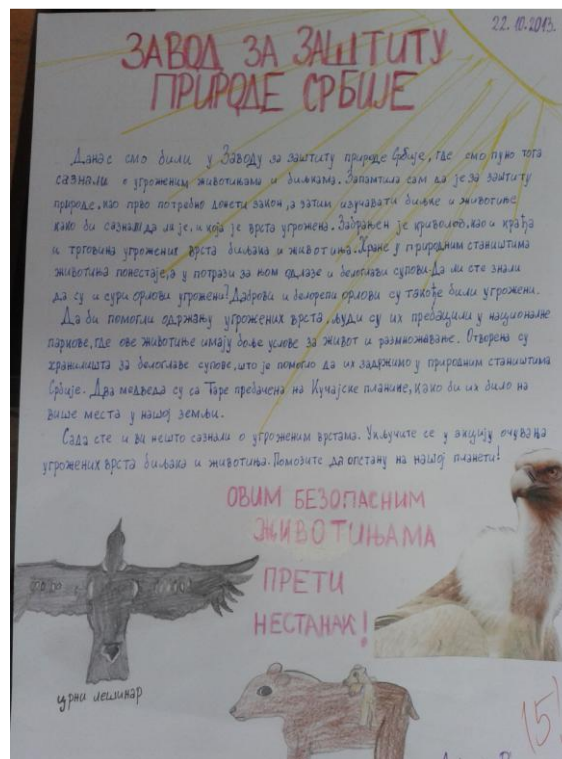 22.10.2013.
ЗАВОД ЗА ЗАШТИТУ
ПРИРОДЕ СРБИЈЕ
Данас смо били у Заводу за заштиту природе Србије, где смо пуно тога
сазнали о угроженим животињама и биљкама. Запамтила сам да је за заштиту
природе, као прво потребно донети закон, а затим изучавати биљке и животиње
како би сазнали да ли је, и која је врста угрожена. Забрањен је криволов, као и крађа
и трговина угрожених врста биљака и животиња. Хране у природним стаништима
животиња понестаје, а у потрази за њом одлазе и белоглави супови. Да ли сте знали
да су и сури орлови угрожени? Даброви и белорепи орлови су такође били угрожени.
Да би помогли одржању угрожених врста, људи су их пребацили у националне
паркове, где ове животиње имају боље услове за живот и размножавање. Отворена су
хранилишта за белоглаве супове, што је помогло да их задржимо у природним стаништима
Србије. Два медведа су са Таре пребачена на Кучајске планине, како би их било на
више места у нашој земљи.
Сада сте и ви нешто сазнали о угроженим врстама. Укључите се у акцију очувања
угрожених врста биљака и животиња. Помозите да опстану на нашој планети!
ОВИМ БЕЗОПАСНИМ
ЖИВОТИЊАМА
ПРЕТИ
НЕСТАНАК!
црни лешинар
15!